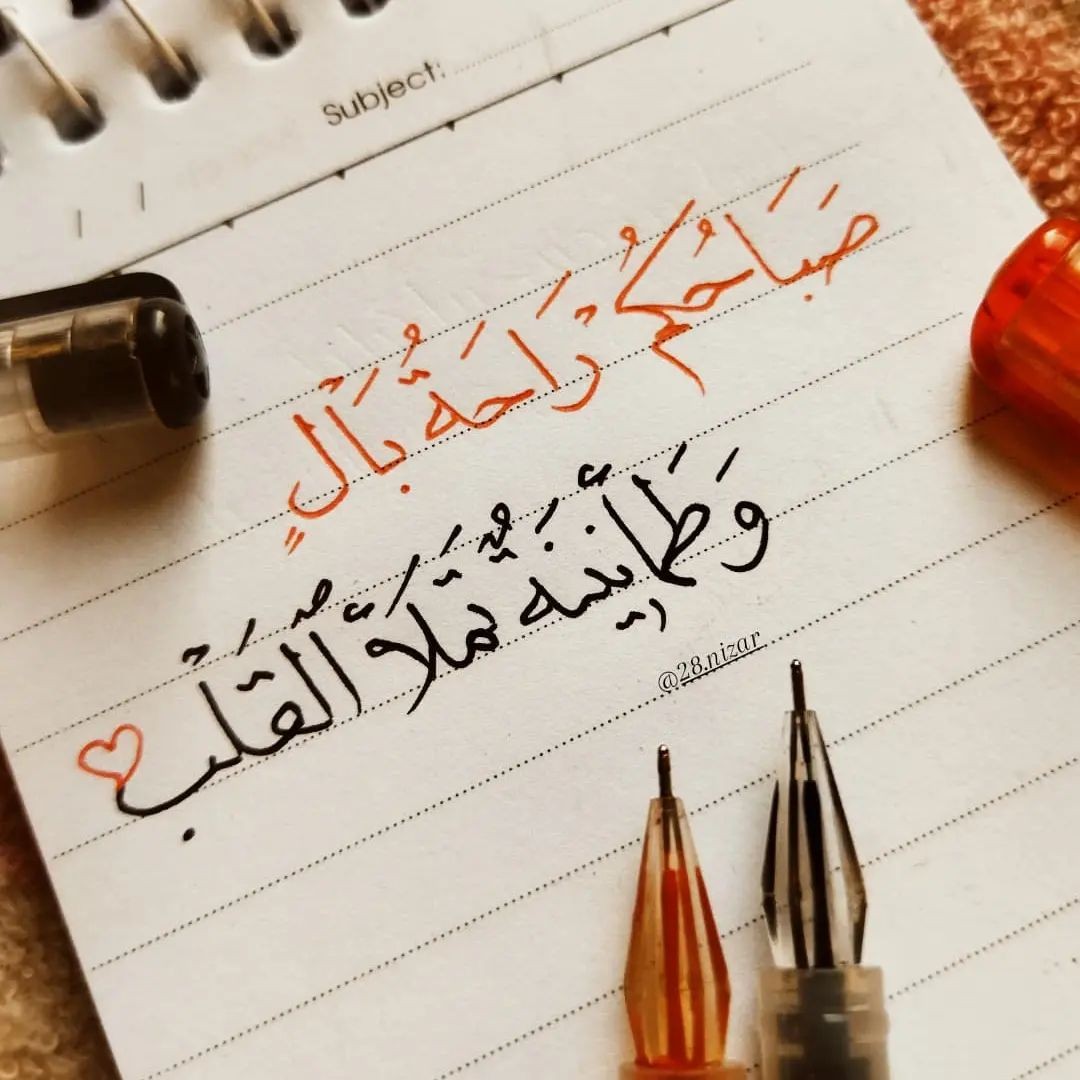 Subject:
صَبَاحُكُمْ رَاحَةُ بَالٍ
وَطَمَأْنِينَةٌ تَمْلَأُ الْقَلْب
@28.nizar